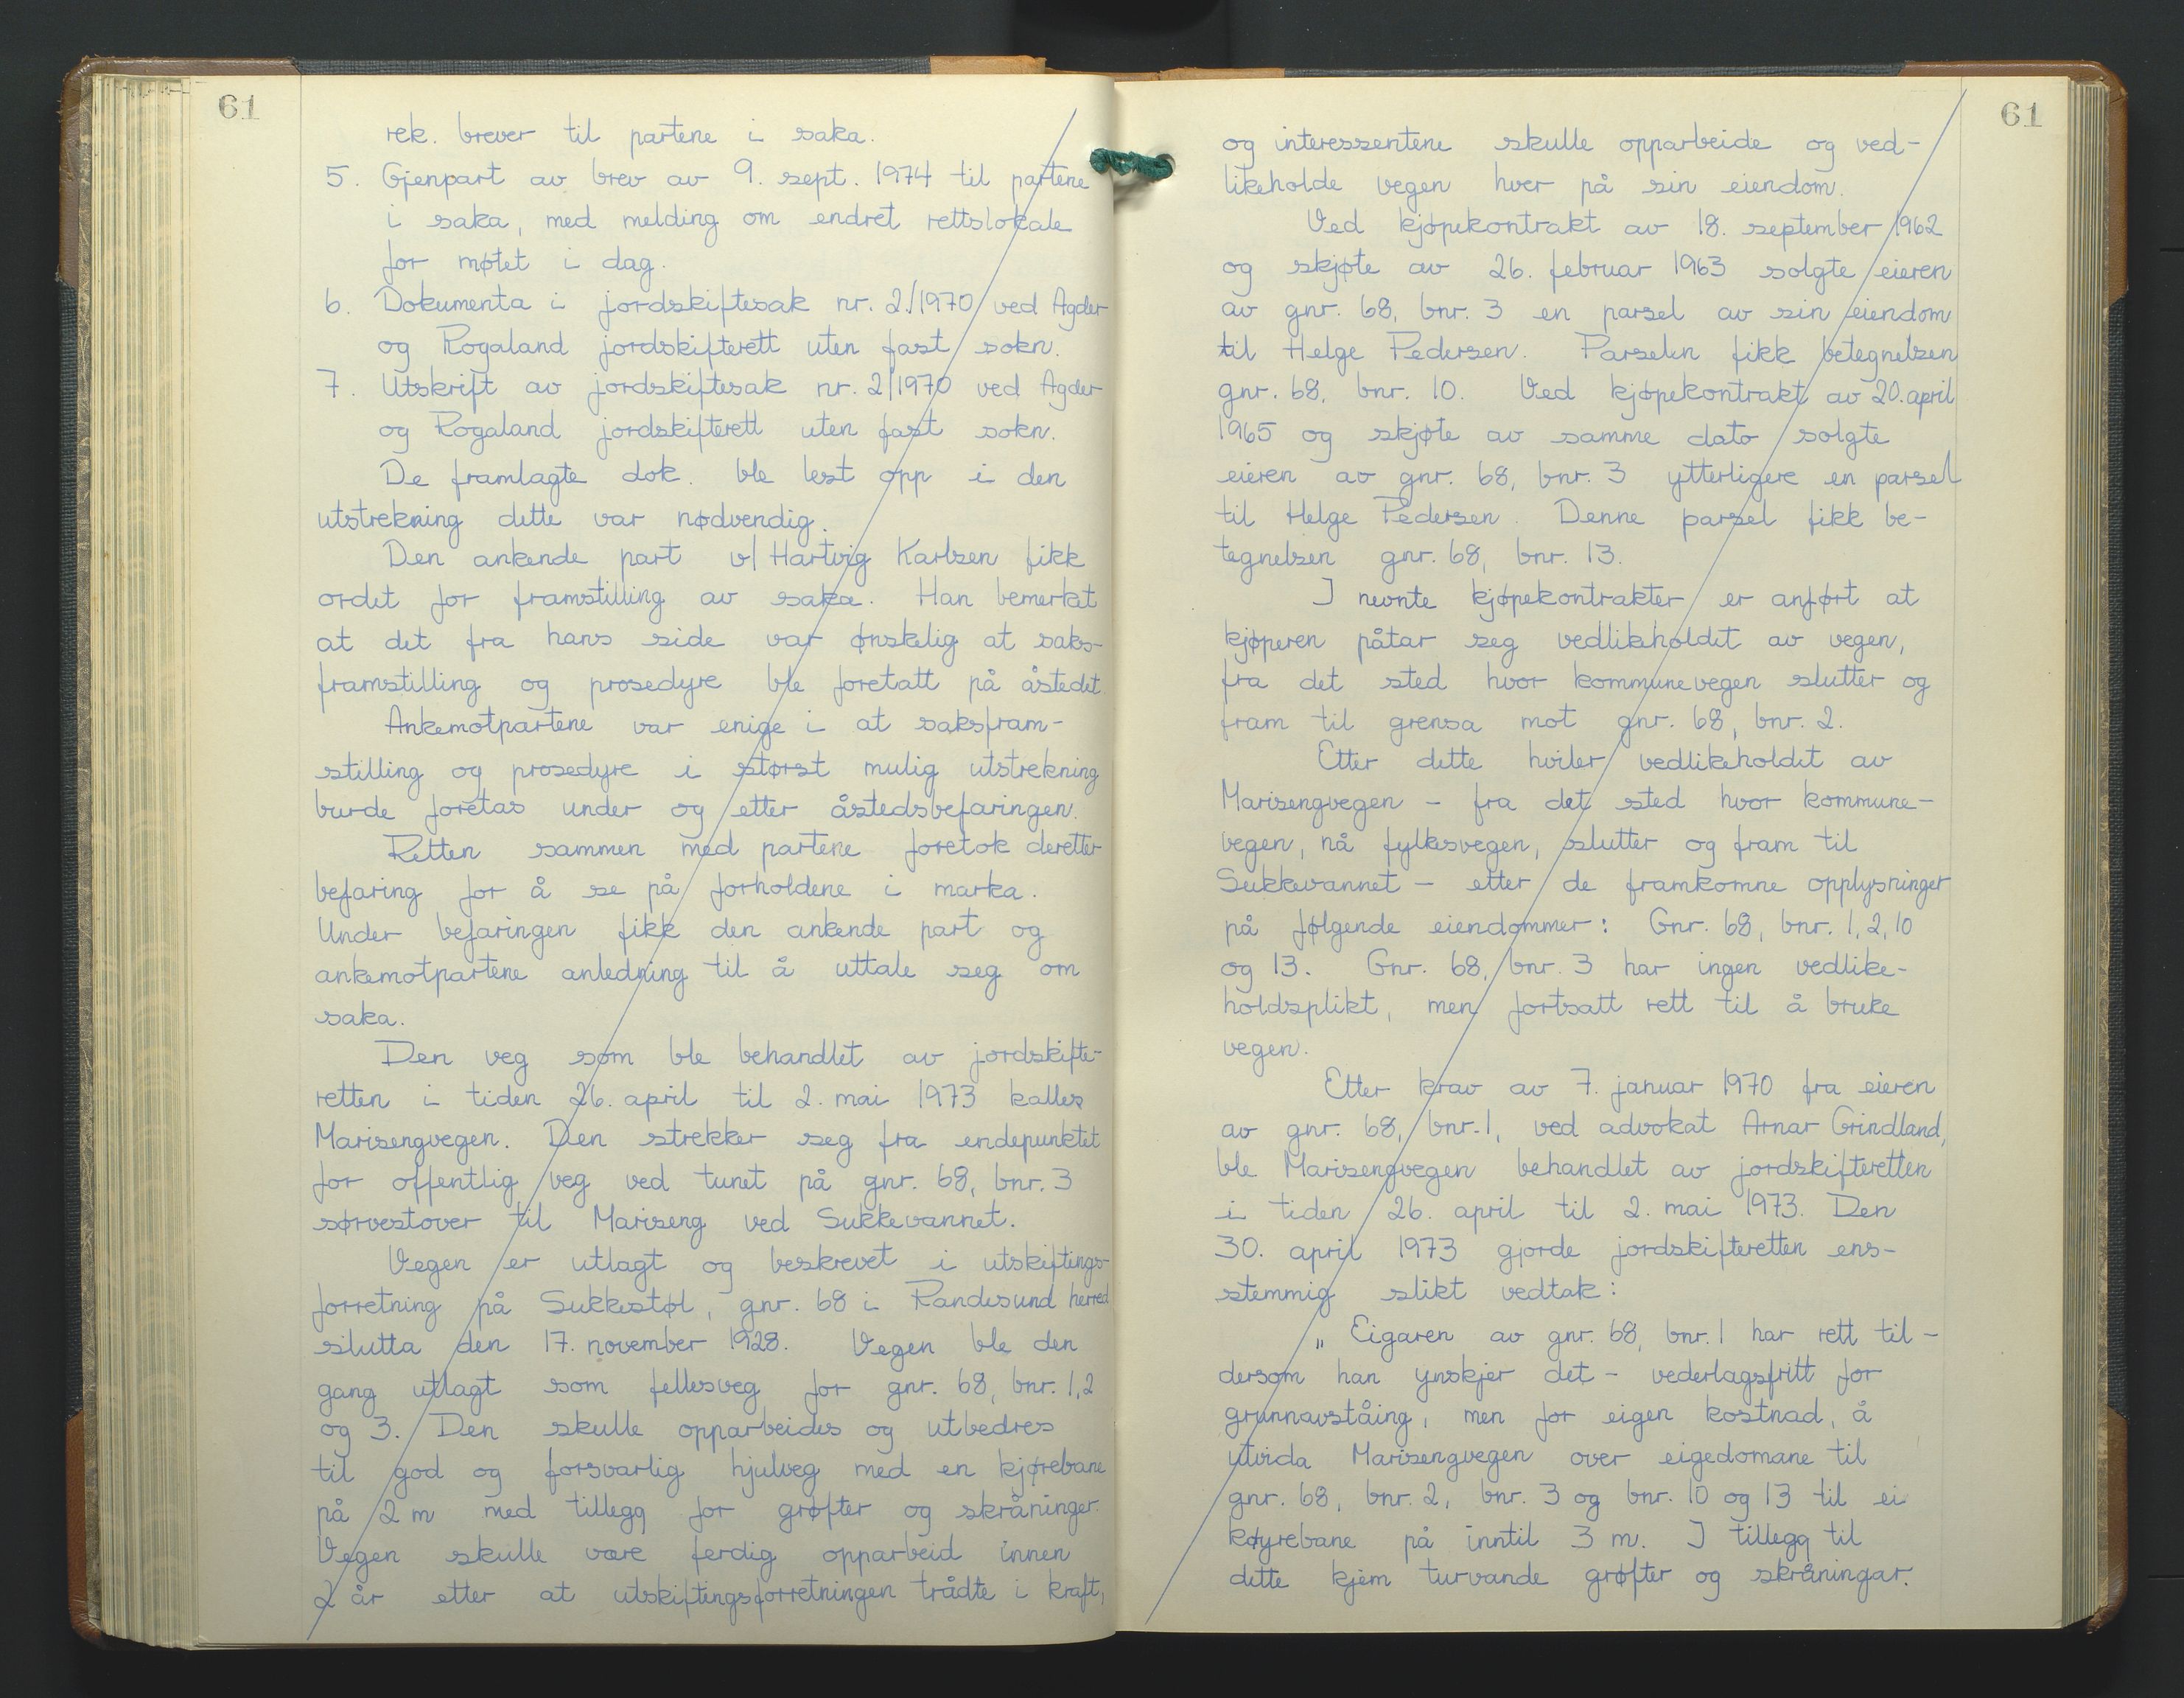 61
rek. brever til partene i saka.
5. Gjenpart av brev av 9. sept. 1974 til partene
i saka, med melding om endret rettslokale
for møtet i dag.
6. Dokumenta i jordskiftesak nr. 2/1970 ved Agder
og Rogaland jordskifterett uten fast sokn.
7. Utskrift av jordskiftesak nr. 2/1970 ved Agder
og Rogaland jordskifterett uten fast sokn.
De framlagte dok. ble lest opp i den
utstrekning dette var nødvendig.
Den ankende part v/ Hartvig Karlsen fikk
ordet for framstilling av saka. Han bemerket
at det fra hans side var ønskelig at saks-
framstilling og prosedyre ble foretatt på åstedet.
Ankemotpartene var enige i at saksfram-
stilling og prosedyre i størst mulig utstrekning
burde foretas under og etter åstedsbefaringen.
Retten sammen med partene foretok deretter
befaring for å se på forholdene i marka.
Under befaringen fikk den ankende part og
ankemotpartene anledning til å uttale seg om
saka.
Den veg som ble behandlet av jordskifte-
retten i tiden 26. april til 2. mai 1973 kalles
Marisengvegen. Den strekker seg fra endepunktet
for offentlig veg ved tunet på gnr. 68, bnr. 3
sørvestover til Mariseng ved Sukkevannet.
Vegen er utlagt og beskrevet i utskiftings-
forretning på Sukkestøl, gnr. 68 i Randesund herred
slutta den 17. november 1928. Vegen ble den
gang utlagt som fellesveg for gnr. 68, bnr. 1, 2
og 3. Den skulle opparbeides og utbedres
til god og forsvarlig hjulveg med en kjørebane
på 2 m med tillegg for grøfter og skråninger.
Vegen skulle være ferdig opparbeid innen
2 år etter at utskiftingsforretningen trådte i kraft,
61
og interessentene skulle opparbeide og ved-
likeholde vegen hver på sin eiendom.
Ved kjøpekontrakt av 18. september 1962
og skjøte av 26. februar 1963 solgte eieren
av gnr. 68, bnr. 3 en parsel av sin eiendom
til Helge Pedersen. Parselen fikk betegnelsen
gnr. 68, bnr. 10. Ved kjøpekontrakt av 20. april
1965 og skjøte av samme dato solgte
eieren av gnr. 68, bnr. 3 ytterligere en parsel
til Helge Pedersen. Denne parsel fikk be-
tegnelsen gnr. 68, bnr. 13.
I nevnte kjøpekontrakter er anført at
kjøperen påtar seg vedlikeholdet av vegen,
fra det sted hvor kommunevegen slutter og
fram til grensa mot gnr. 68, bnr. 2.
Etter dette hviler vedlikeholdet av
Marisengvegen - fra det sted hvor kommune-
vegen, nå fylkesvegen, slutter og fram til
Sukkevannet - etter de framkomne opplysninger
på følgende eiendommer: Gnr. 68, bnr. 1, 2, 10
og 13. Gnr. 68, bnr. 3 har ingen vedlike-
holdsplikt, men fortsatt rett til å bruke
vegen.
Etter krav av 7. januar 1970 fra eieren
av gnr. 68, bnr. 1, ved advokat Arnar Grindland,
ble Marisengvegen behandlet av jordskifteretten
i tiden 26. april til 2. mai 1973. Den
30. april 1973 gjorde jordskifteretten ens-
stemmig slikt vedtak:
„ Eigaren av gnr. 68, bnr. 1 har rett til -
dersom han ynskjer det - vederlagsfritt for
grunnavståing, men for eigen kostnad, å
utvida Marisengvegen over eigedomane til
gnr. 68, bnr. 2, bnr. 3 og bnr. 10 og 13 til ei
køyrebane på inntil 3 m. I tillegg til
dette kjem turvande grøfter og skråningar.